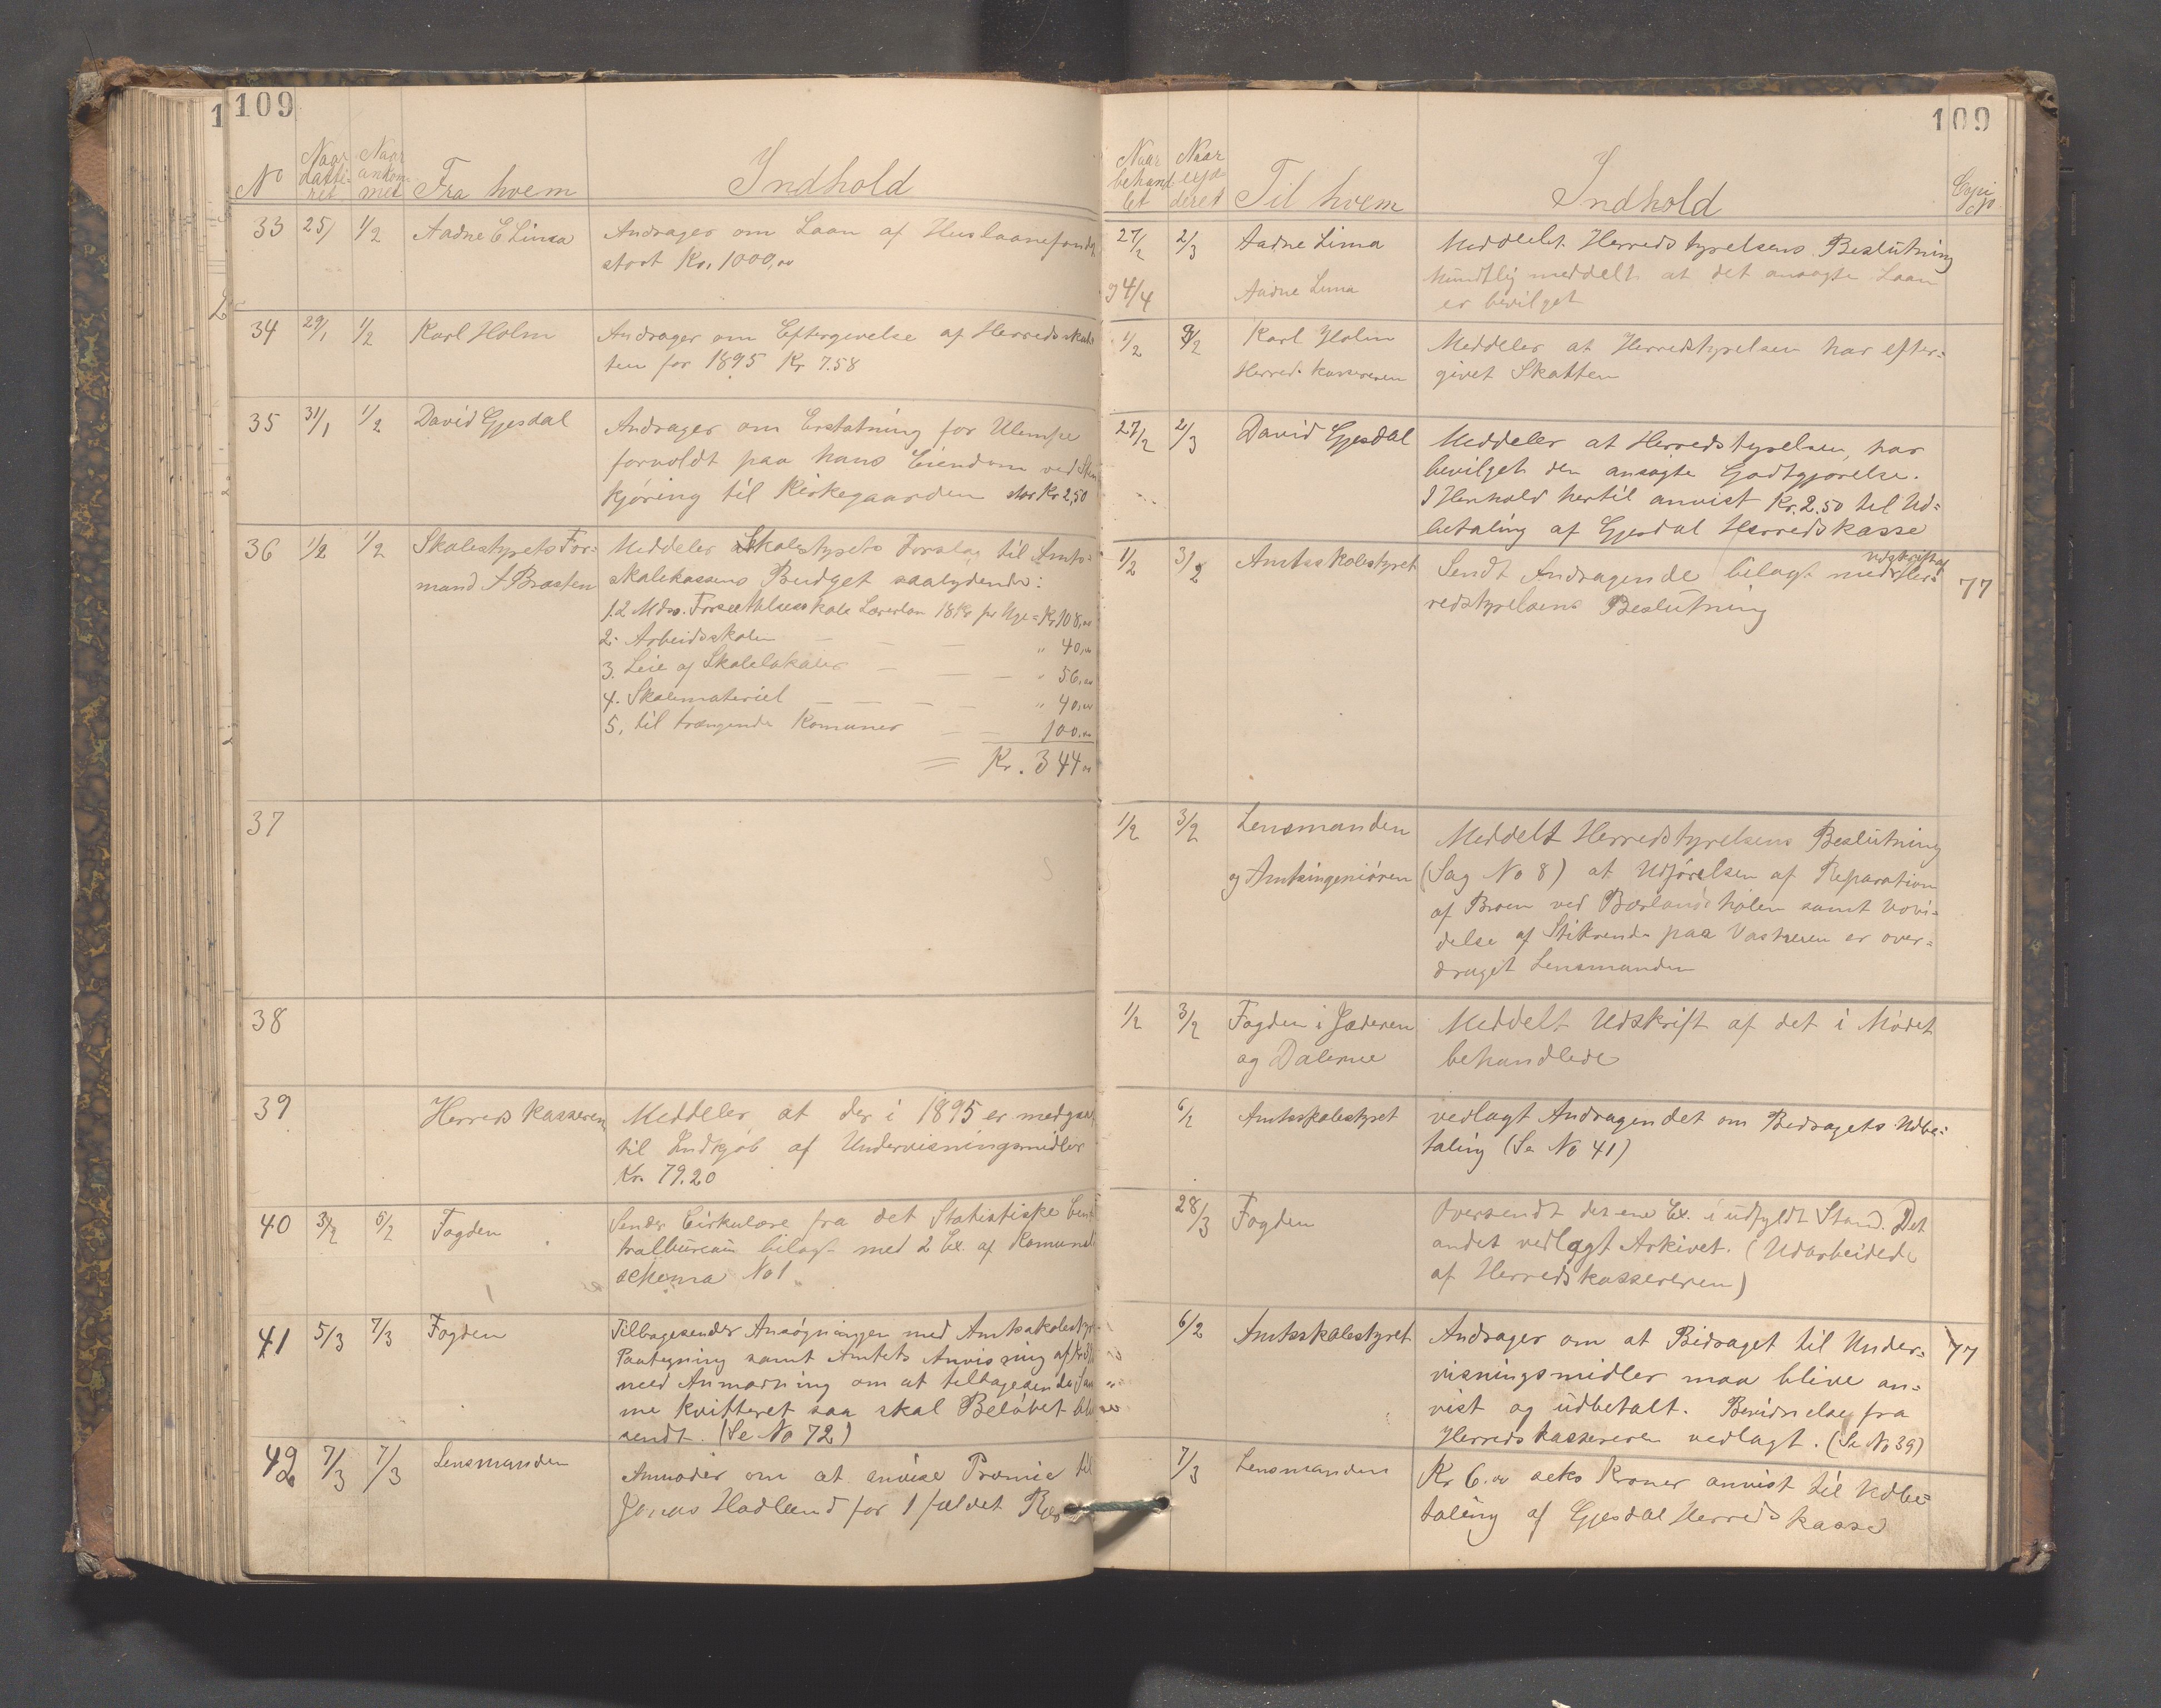 109
No
Naar datte-ret
Naar ankom-met
Fra hvem
Indhold
33 25/ 1/2 Aadne E Lima
Andrager om Laan af Huslaanefondet
stort Kr. 1000,00
34 29/1 1/2 Karl Holm
Andrager om Eftergivelse af Herredsskat-
ten for 1895 Kr 7.58
35 31/1 1/2 David Gjesdal
Andrager om Erstatning for Ulempe
forvoldt paa hans Eiendom ved Sten
kjøring til Kirkegaarden stor Kr 2,50
36 1/2 1/2 Skolestyrets For-
mand A Bråsten
Meddeler Skolestyrets Forslag til Amts-
skolekassens Budget saalydende:
1. 2 Mdrs. Forsættelsesskole Lærerløn 18 Kr pr Uge = Kr 108,00
2. Arbeidsskolen — — " 40,00
3. Leie af Skolelokaler — — — " 56,00
4. Skolemateriel — — — — " 40,00
5. til trængende Komuner — — 100,00
= Kr. 344 00
37
38
39 Herredskasseren
Meddeler at der i 1895 er medgaat
til Indkjøb af Undervisningsmidler
Kr. 79.20
40 3/2 5/2 Fogden
Sender Cirkulære fra det Statistiske Cen-
tralbureau bilagt med 2 Ex. af Komune
schema No 1
41 5/3 7/3 Fogden
Tilbagesender Ansøgningen med Amtsskolestyr
Paategning samt Amtets Anvisning af Kr
med Anmodning om at tilbagesende sam
me kvitteret saa skal Beløbet bli
sendt. (Se No 72)
42 7/3 7/3 Lensmanden
Anmoder om at anvise Præmie til
Jonas Hadland for 1 fældet Ræv
109
Naar behand-let
Naar expe-deret
Til hvem
Indhold
Copi No
27/2 2/3 Aadne Lima
Meddelt Herredstyrelsens Beslutning
24/4 Aadne Lima
Mundtlig meddelt at det ansøgte Laan
er bevilget
1/2 3/2 Karl Holm
Herredskassereren
Meddeler at Herredstyrelsen har efter-
givet Skatten
27/2 2/3 David Gjesdal
Meddeler at Herredstyrelsen, har
bevilget den ansøgte Godtgjørelse.
I Henhold hertil anvist Kr. 2.50 til Ud-
betaling af Gjesdal Herredskasse
1/2 3/2 Amtsskolestyret
Sendt Andragende bilagt med Udskrift af Her-
redstyrelsens Beslutning
77
1/2 3/2 Lensmanden
og Amtsingeniøren
Meddelt Herredstyrelsens Beslutning
(Sag No 8) at Udførelsen af Reparation
af Broen ved Bærlandshølen samt Udvi-
delse af Stikrende paa Vastveien er over-
draget Lensmanden
1/2 3/2 Fogden i Jæderen
og Dalerne
Meddelt Udskrift af det i Mødet
behandlede
6/2 Amtsskolestyret
vedlagt Andragendet om Bidragets Udbe-
taling (Se No 41)
28/3 Fogden
Oversendt det ene Ex. i udfyldt Stand. Det
andet vedlagt Arkivet. (Udarbeidede
af Herredskassereren)
6/2 Amtsskolestyret
Andrager om at Bidraget til Under-
visningsmidler maa blive an-
vist og udbetalt. Bevidnelse fra
Herredskassereren vedlagt. (Se No 39)
77
7/3 Lensmanden
Kr 6.00 seks Kroner anvist til Udbe-
taling af Gjesdal Herredskasse